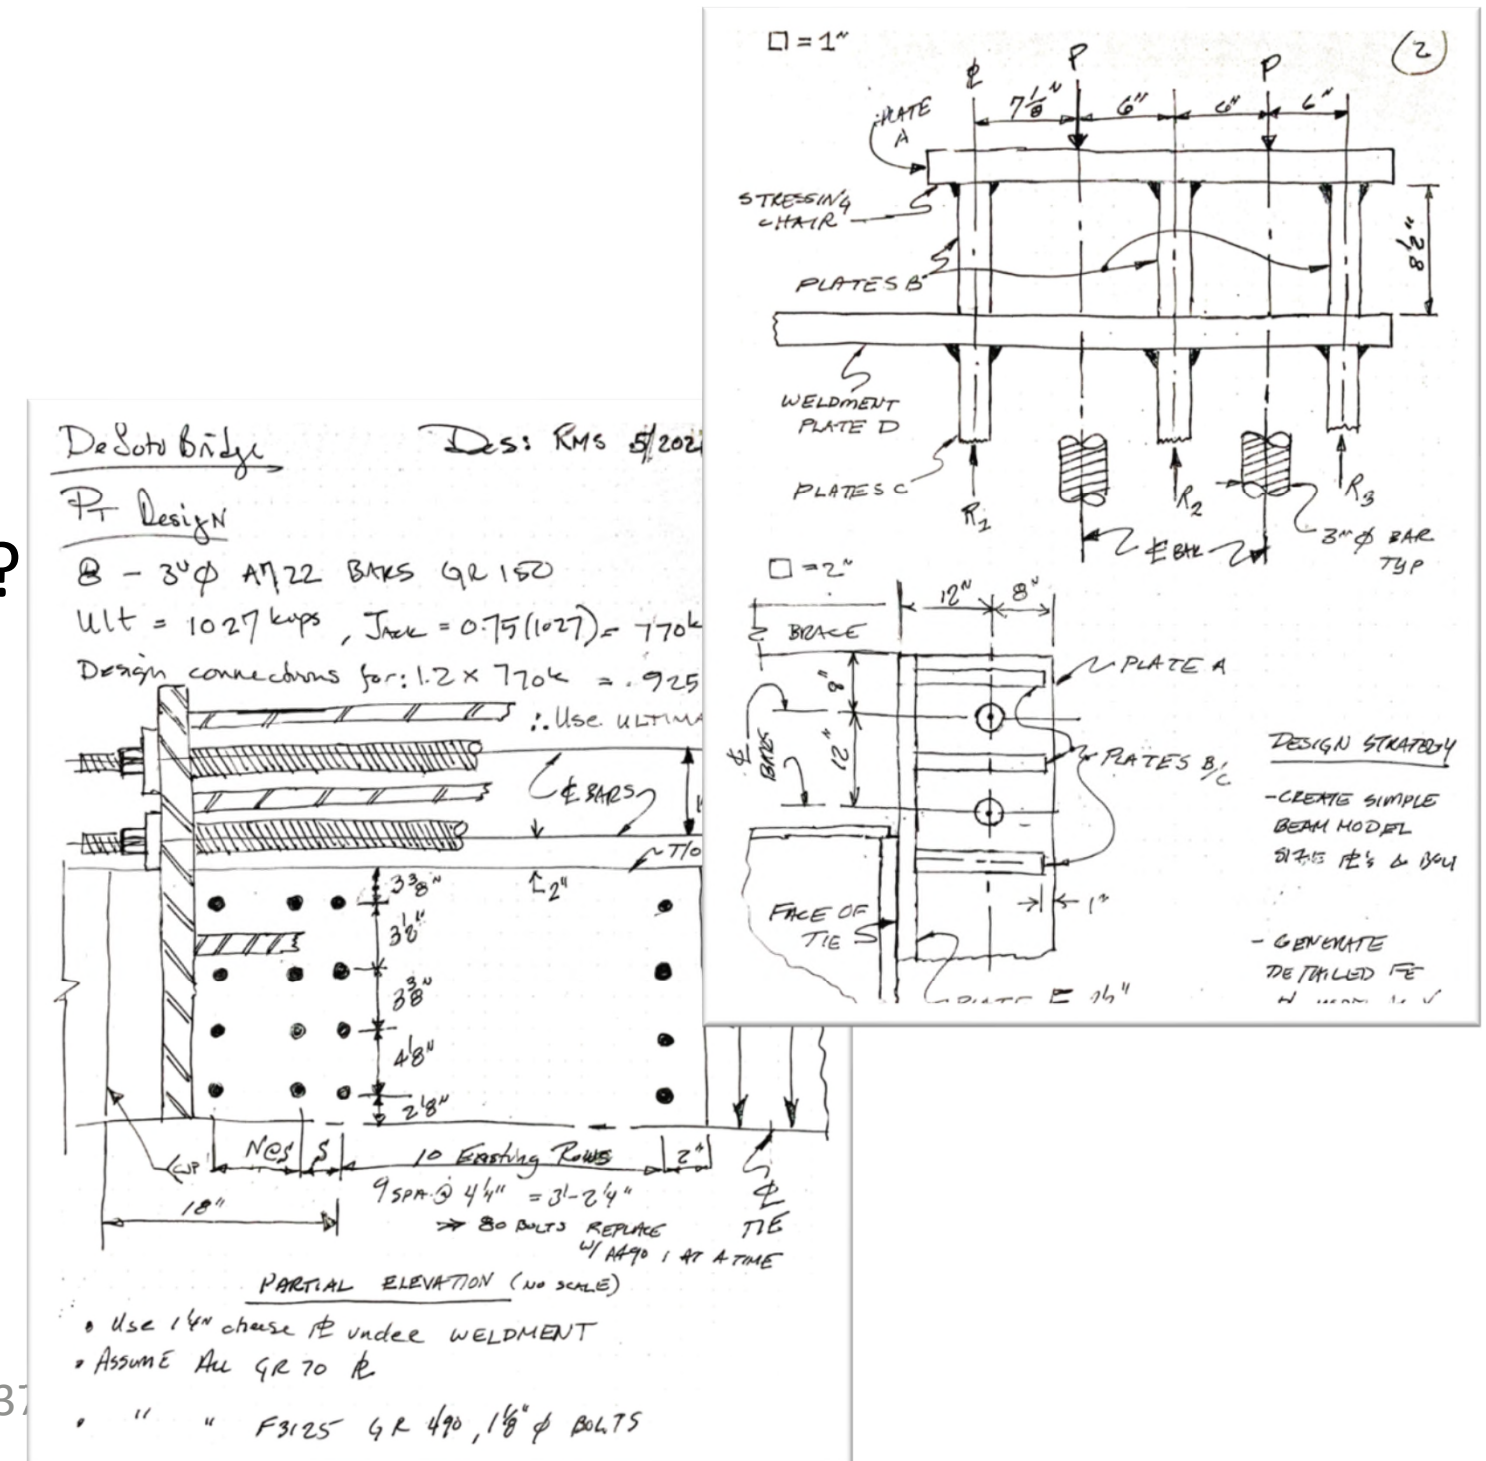 ?
37
DeSoto Bridge
Des: RMS 5/202
PT Design
8 - 3"φ A722 BARS GR 150
Ult = 1027 kips, Jack = 0.75(1027) = 770k
Design connections for: 1.2 x 770k = .925
∴ Use ULTIMA
℄ BARS
T/O
2"
3 3/8"
3 1/8"
3 3/8"
4 1/8"
2 1/8"
N@S
S
10 Existing Rows
2"
18"
9 SPA @ 4 1/4" = 3'-2 1/4"
⇒ 80 BOLTS REPLACE
W/ A490 1 AT A TIME
℄
TIE
PARTIAL ELEVATION (NO SCALE)
• Use 1 1/4" cheese PL under WELDMENT
• ASSUME ALL GR 70 PL
• " " F3125 GR 490, 1 1/8" φ BOLTS
□ = 1"
2
℄
P
P
7 1/8"
6"
6"
6"
PLATE
A
STRESSING
CHAIR
PLATES B
WELDMENT
PLATE D
PLATES C
R1
R2
R3
℄ BAR
3" φ BAR
TYP
□ = 2"
12"
8"
BRACE
8"
12"
℄
BARS
PLATE A
PLATES B/C
1"
FACE OF
TIE
PLATE E
DESIGN STRATEGY
- CREATE SIMPLE
BEAM MODEL
SIZE PL's & BOLT
- GENERATE
DETAILED FE